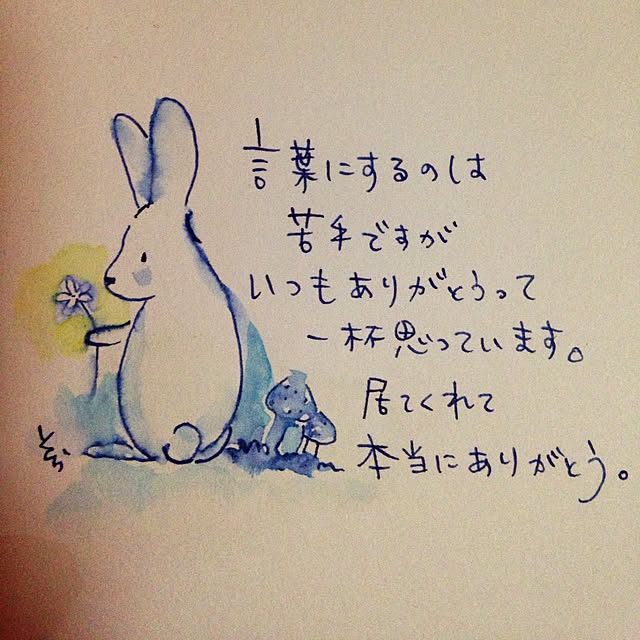 言葉にするのは
苦手ですが
いつもありがとうって
一杯思っています。
居てくれて
本当にありがとう。